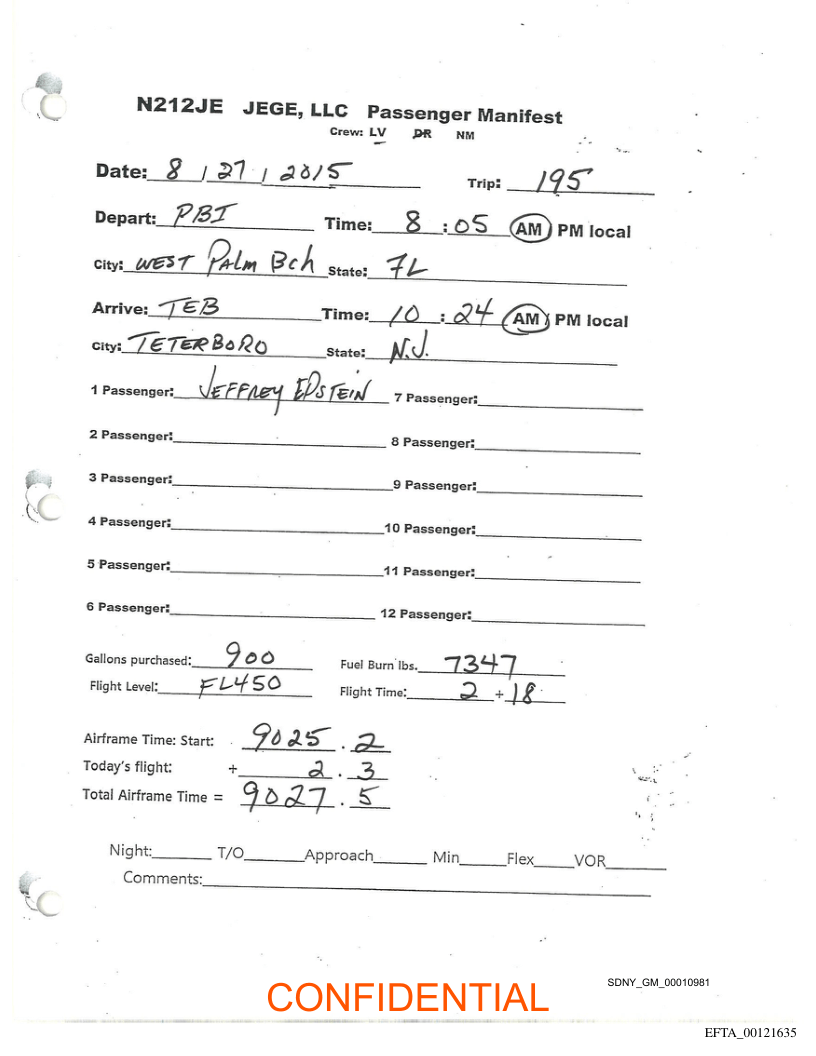 N212JE JEGE, LLC Passenger Manifest
Crew: LV DR NM
Date: 8 / 27 / 2015 Trip: 195
Depart: PBI Time: 8 : 05 AM PM local
City: WEST PALM BCh State: FL
Arrive: TEB Time: 10 : 24 AM PM local
City: TETERBORO State: N.J.
1 Passenger: JEFFREY EPSTEIN 7 Passenger:
2 Passenger: 8 Passenger:
3 Passenger: 9 Passenger:
4 Passenger: 10 Passenger:
5 Passenger: 11 Passenger:
6 Passenger: 12 Passenger:
Gallons purchased: 900 Fuel Burn lbs. 7347
Flight Level: FL450 Flight Time: 2 + 18
Airframe Time: Start: 9025 . 2
Today's flight: + 2 . 3
Total Airframe Time = 9027 . 5
Night: T/O Approach Min Flex VOR
Comments:
SDNY_GM_00010981
CONFIDENTIAL
EFTA_00121635